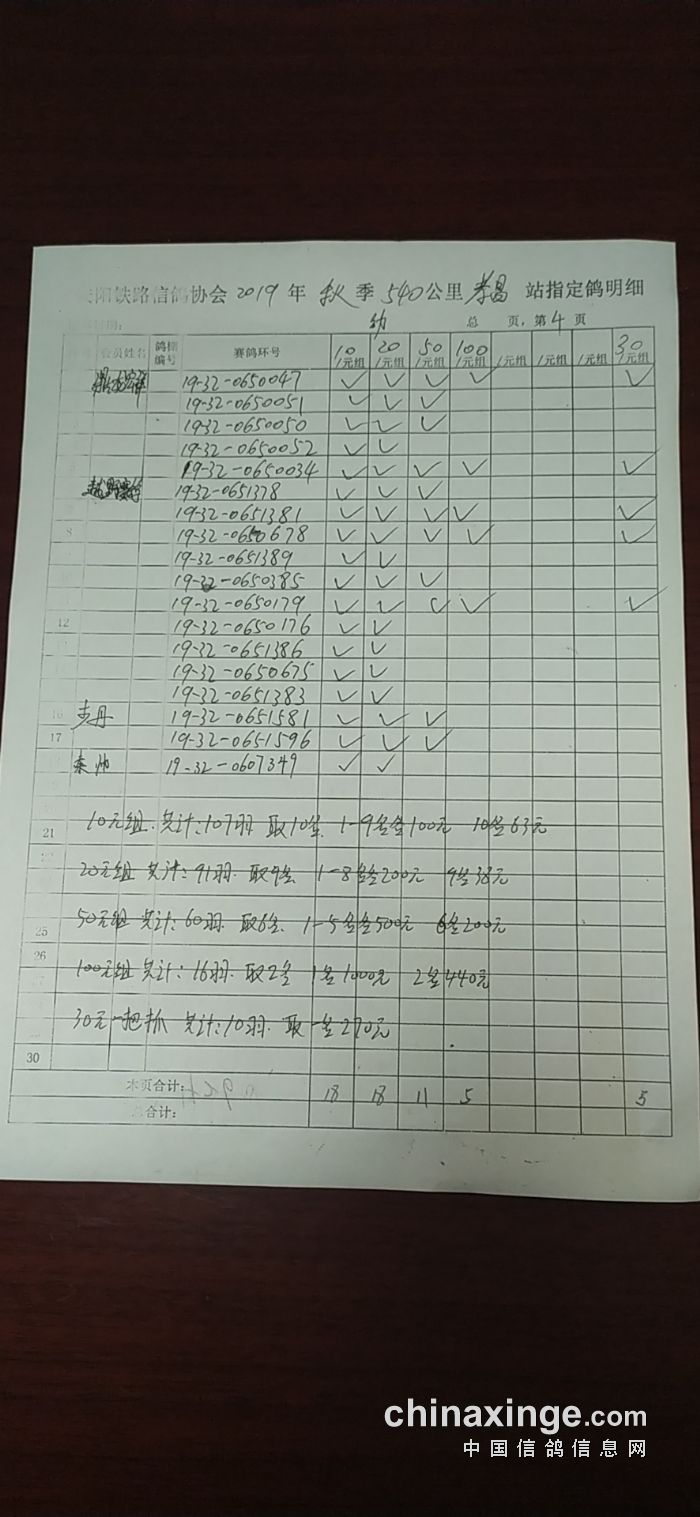 阳铁路信鸽协会 2019 年 秋 季 540 公里 孝昌 站指定鸽明细
幼 总 页，第 4 页
会员姓名 鸽棚编号 赛鸽环号 10/元组 20/元组 50/元组 100/元组 /元组 /元组 /元组 30/元组
19-32-0650047 ✓ ✓ ✓ ✓ ✓
19-32-0650051 ✓ ✓ ✓
19-32-0650050 ✓ ✓ ✓
19-32-0650052 ✓ ✓
19-32-0650034 ✓ ✓ ✓ ✓ ✓
19-32-0651378 ✓ ✓ ✓
19-32-0651381 ✓ ✓ ✓ ✓ ✓
8 19-32-0650678 ✓ ✓ ✓ ✓ ✓
19-32-0651389 ✓ ✓
19-32-0650385 ✓ ✓ ✓
19-32-0650179 ✓ ✓ ✓ ✓ ✓
12 19-32-0650176 ✓ ✓
19-32-0651386 ✓ ✓
19-32-0650675 ✓ ✓
19-32-0651383 ✓ ✓
16 19-32-0651581 ✓ ✓ ✓
17 19-32-0651596 ✓ ✓ ✓
秦帅 19-32-0607349 ✓ ✓
21 10元组.共计:107羽 取10名. 1-9名各100元 10名63元
20元组 共计:91羽.取9名 1-8名各200元 9名38元
25 50元组 共计:60羽.取6名. 1-5名各500元 6名200元
26
100元组 共计:16羽.取2名 1名1000元 2名440元
30元一把抓 共计:10羽.取一名270元
30
本页合计: 18 18 11 5 5
总合计:
chinaxinge.com
中国信鸽信息网